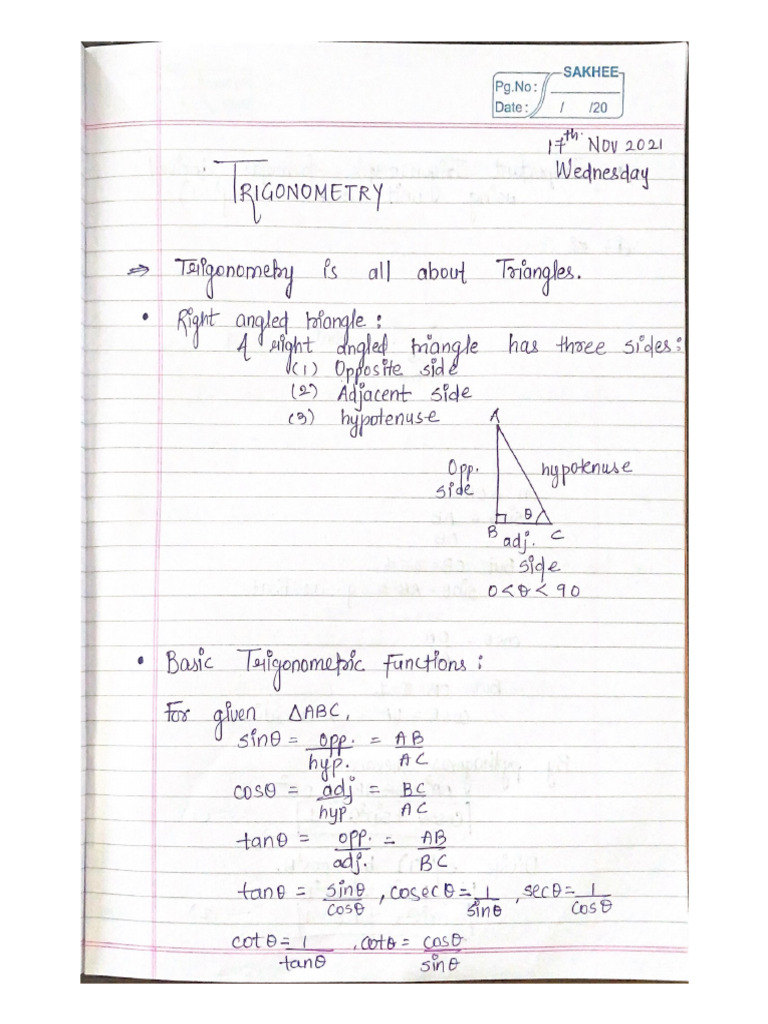 SAKHEE
Pg.No:
Date: / /20
17th Nov 2021
Wednesday
TRIGONOMETRY
⇒ Trigonometry is all about Triangles.
• Right angled triangle:
A right angled triangle has three sides:
(1) Opposite side
(2) Adjacent side
(3) hypotenuse
A
Opp. side
hypotenuse
θ
B
C
adj. side
0<θ<90
• Basic Trigonometric functions:
For given ΔABC,
sinθ = opp./hyp. = AB/AC
cosθ = adj/hyp = BC/AC
tanθ = opp./adj. = AB/BC
tanθ = sinθ/cosθ, cosecθ = 1/sinθ, secθ = 1/cosθ
cotθ = 1/tanθ, cotθ = cosθ/sinθ